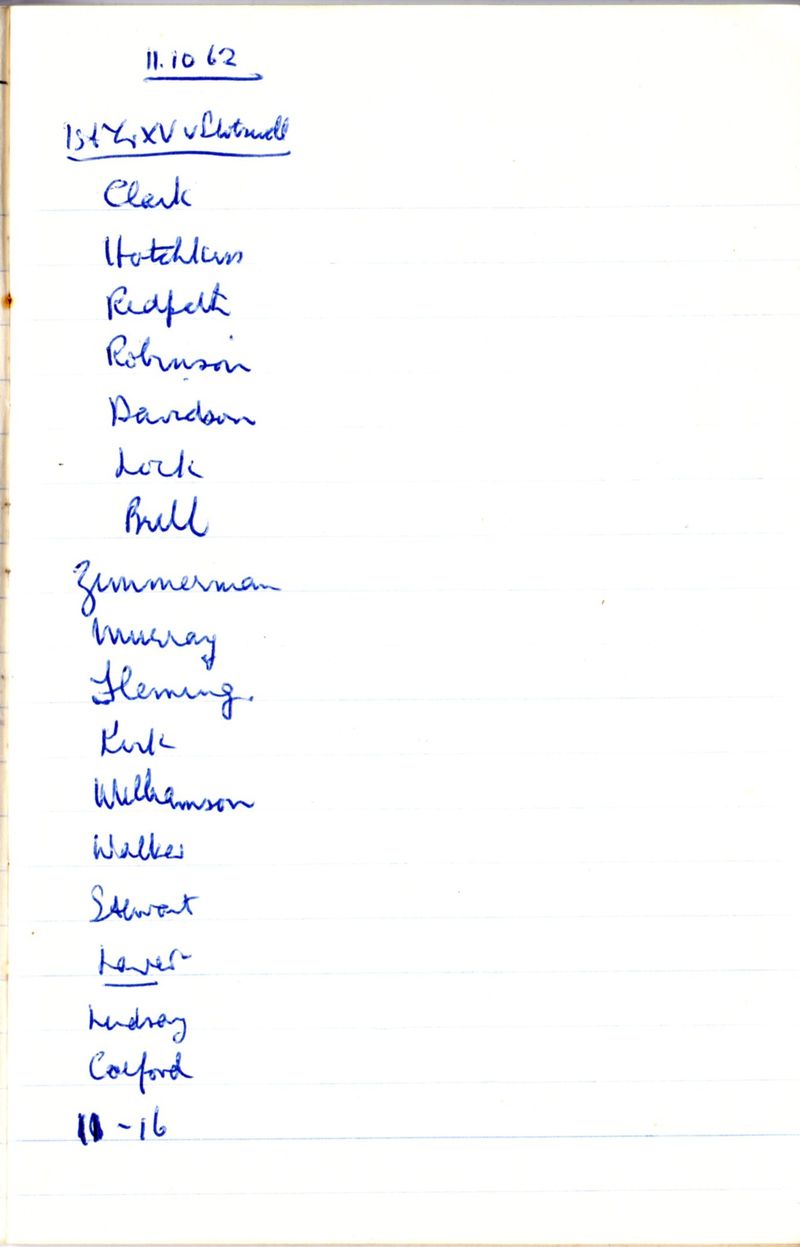 11.10 62
1st Yr XV v
Clark
Hotchkiss
Redpath
Robinson
Davidson
Lock
Bull
Zimmerman
Murray
Fleming.
Kirk
Williamson
Walker
Stewart
Lindsay
11 - 16